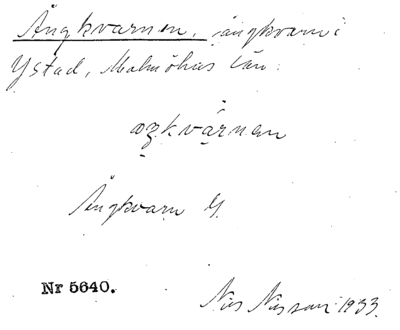 Ångkvarnen, ångkvarn i
Ystad, Malmöhus län.
aŋkvärnen
Ångkvarn G.
Nr 5640.
Nils Nilsson 1933.